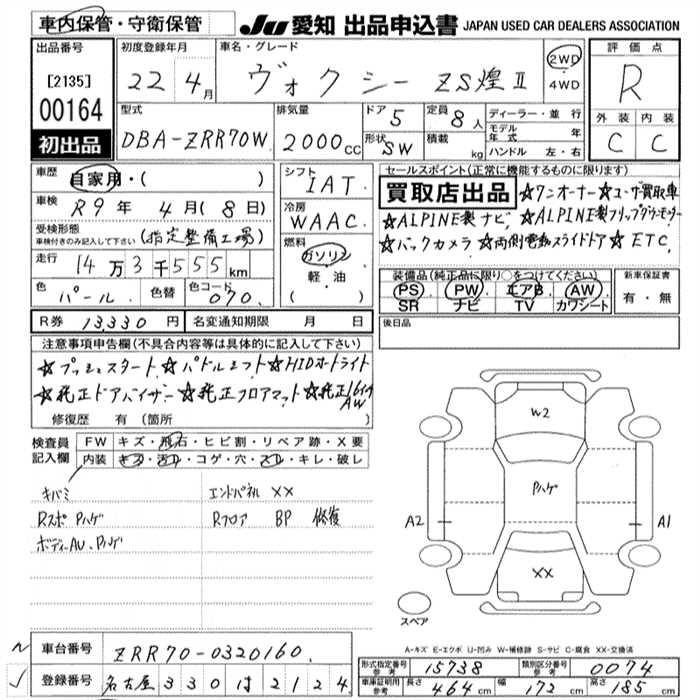 車内保管・守衛保管
JU 愛知 出品申込書 JAPAN USED CAR DEALERS ASSOCIATION
出品番号
[2135]
00164
初出品
初度登録年月
22 4月
車名・グレード
ヴォクシー ZS煌Ⅱ
2WD
4WD
評価点
R
外装 内装
C C
型式
DBA-ZRR70W
排気量
2000cc
ドア 5
形状 SW
定員 8人
積載 kg
ディーラー・並行
モデル年式 年
ハンドル 左・右
車歴
自家用・( )
車検
R9年 4月(8日)
受検形態
車検付きのみ記入して下さい
(指定整備工場)
走行
14万3千555km
色 パール
色替
色コード 070
シフト
IAT
冷房
WAAC
燃料
ガソリン
軽・油
( )
セールスポイント(正常に機能するものに限ります)
買取店出品
☆ワンオーナー☆ユーザー買取車
☆ALPINE製ナビ ☆ALPINE製フリップダウンモニター
☆バックカメラ ☆両側電動スライドドア ☆ETC
装備品(純正品に限り○をつけてください)
PS PW エアB AW
SR ナビ TV カワシート
新車保証書
有・無
R券 13,330円
名変通知期限 月 日
後日品
注意事項申告欄(不具合内容等は具体的に記入して下さい)
☆プッシュスタート☆パドルシフト☆HIDオートライト
☆純正ドアバイザー☆純正フロアマット☆純正16インチAW
修復歴 有(箇所 )
検査員記入欄
FW キズ・飛石・ヒビ割・リペア跡・X要
内装 キズ・汚れ・コゲ・穴・スレ・キレ・破レ
キバミ
Rスポ Pハゲ
ボディーAU、Pハゲ
エンドパネル XX
Rフロア BP 修復
W2
Pハゲ
A2
A1
XX
スペア
A-キズ E-エクボ U-凹み W-補修跡 S-サビ C-腐食 XX-交換済
車台番号 ZRR70-0320160
登録番号 名古屋 330 は 2124
形式指定番号 参考 15738
類別区分番号 参考 0074
車庫証明用 参考 長さ 464cm 幅 172cm 高さ 185cm